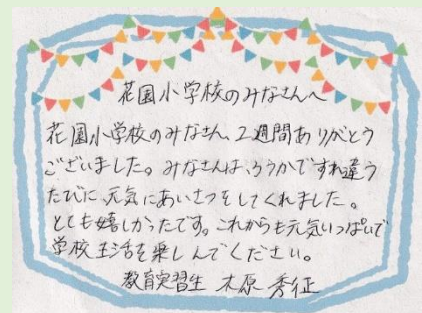 花園小学校のみなさんへ
花園小学校のみなさん、2週間ありがとう
ございました。みなさんは、ろうかですれ違う
たびに、元気にあいさつをしてくれました。
とても嬉しかったです。これからも元気いっぱいで
学校生活を楽しんでください。
教育実習生 木原 秀征